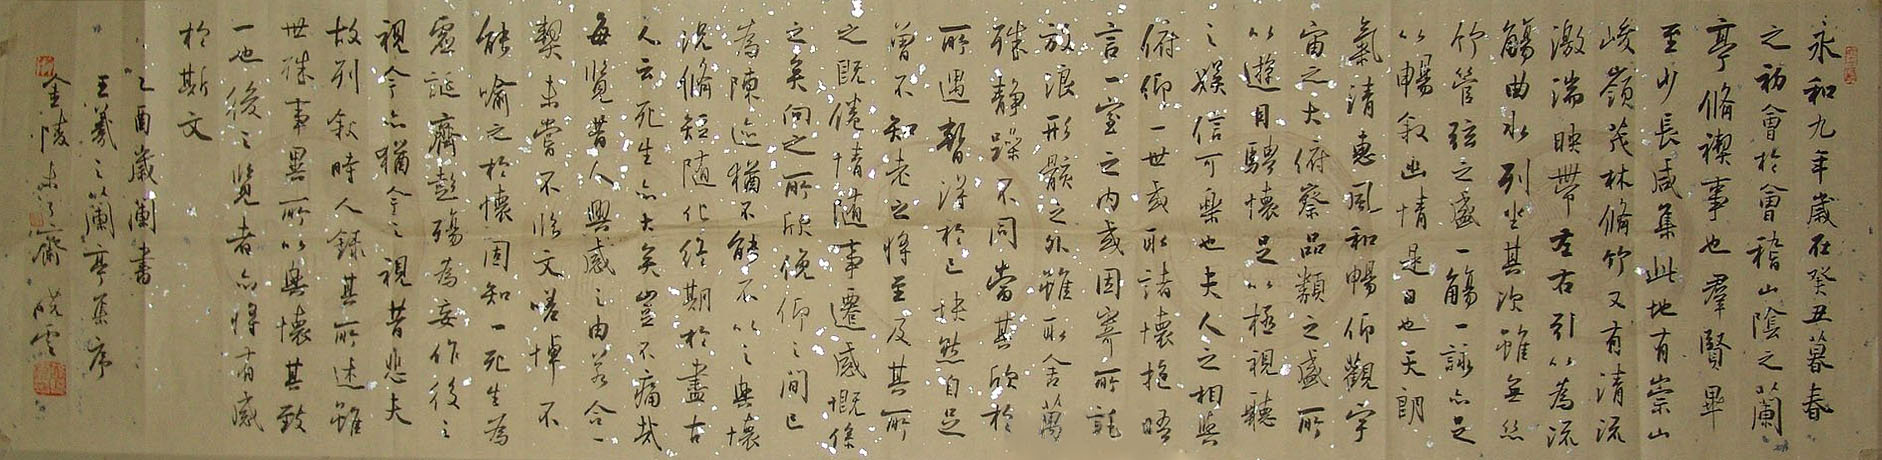 永和九年歲在癸丑暮春
之初會於會稽山陰之蘭
亭脩禊事也羣賢畢
至少長咸集此地有崇山
峻嶺茂林脩竹又有清流
激湍映帶左右引以為流
觴曲水列坐其次雖無絲
竹管弦之盛一觴一詠亦足
以暢敘幽情是日也天朗
氣清惠風和暢仰觀宇
宙之大俯察品類之盛所
以遊目騁懷足以極視聽
之娛信可樂也夫人之相與
俯仰一世或取諸懷抱晤
言一室之內或因寄所託
放浪形骸之外雖取舍萬
殊靜躁不同當其欣於
所遇暫得於己快然自足
曾不知老之將至及其所
之既倦情隨事遷感慨係
之矣向之所欣俛仰之間已
為陳迹猶不能不以之興懷
況脩短隨化終期於盡古
人云死生亦大矣豈不痛哉
每覽昔人興感之由若合一
契未嘗不臨文嗟悼不
能喻之於懷固知一死生為
虛誕齊彭殤為妄作後之
視今亦猶今之視昔悲夫
故列敘時人錄其所述雖
世殊事異所以興懷其致
一也後之覽者亦將有感
於斯文
乙酉歲蘭書
王羲之蘭亭集序
金陵